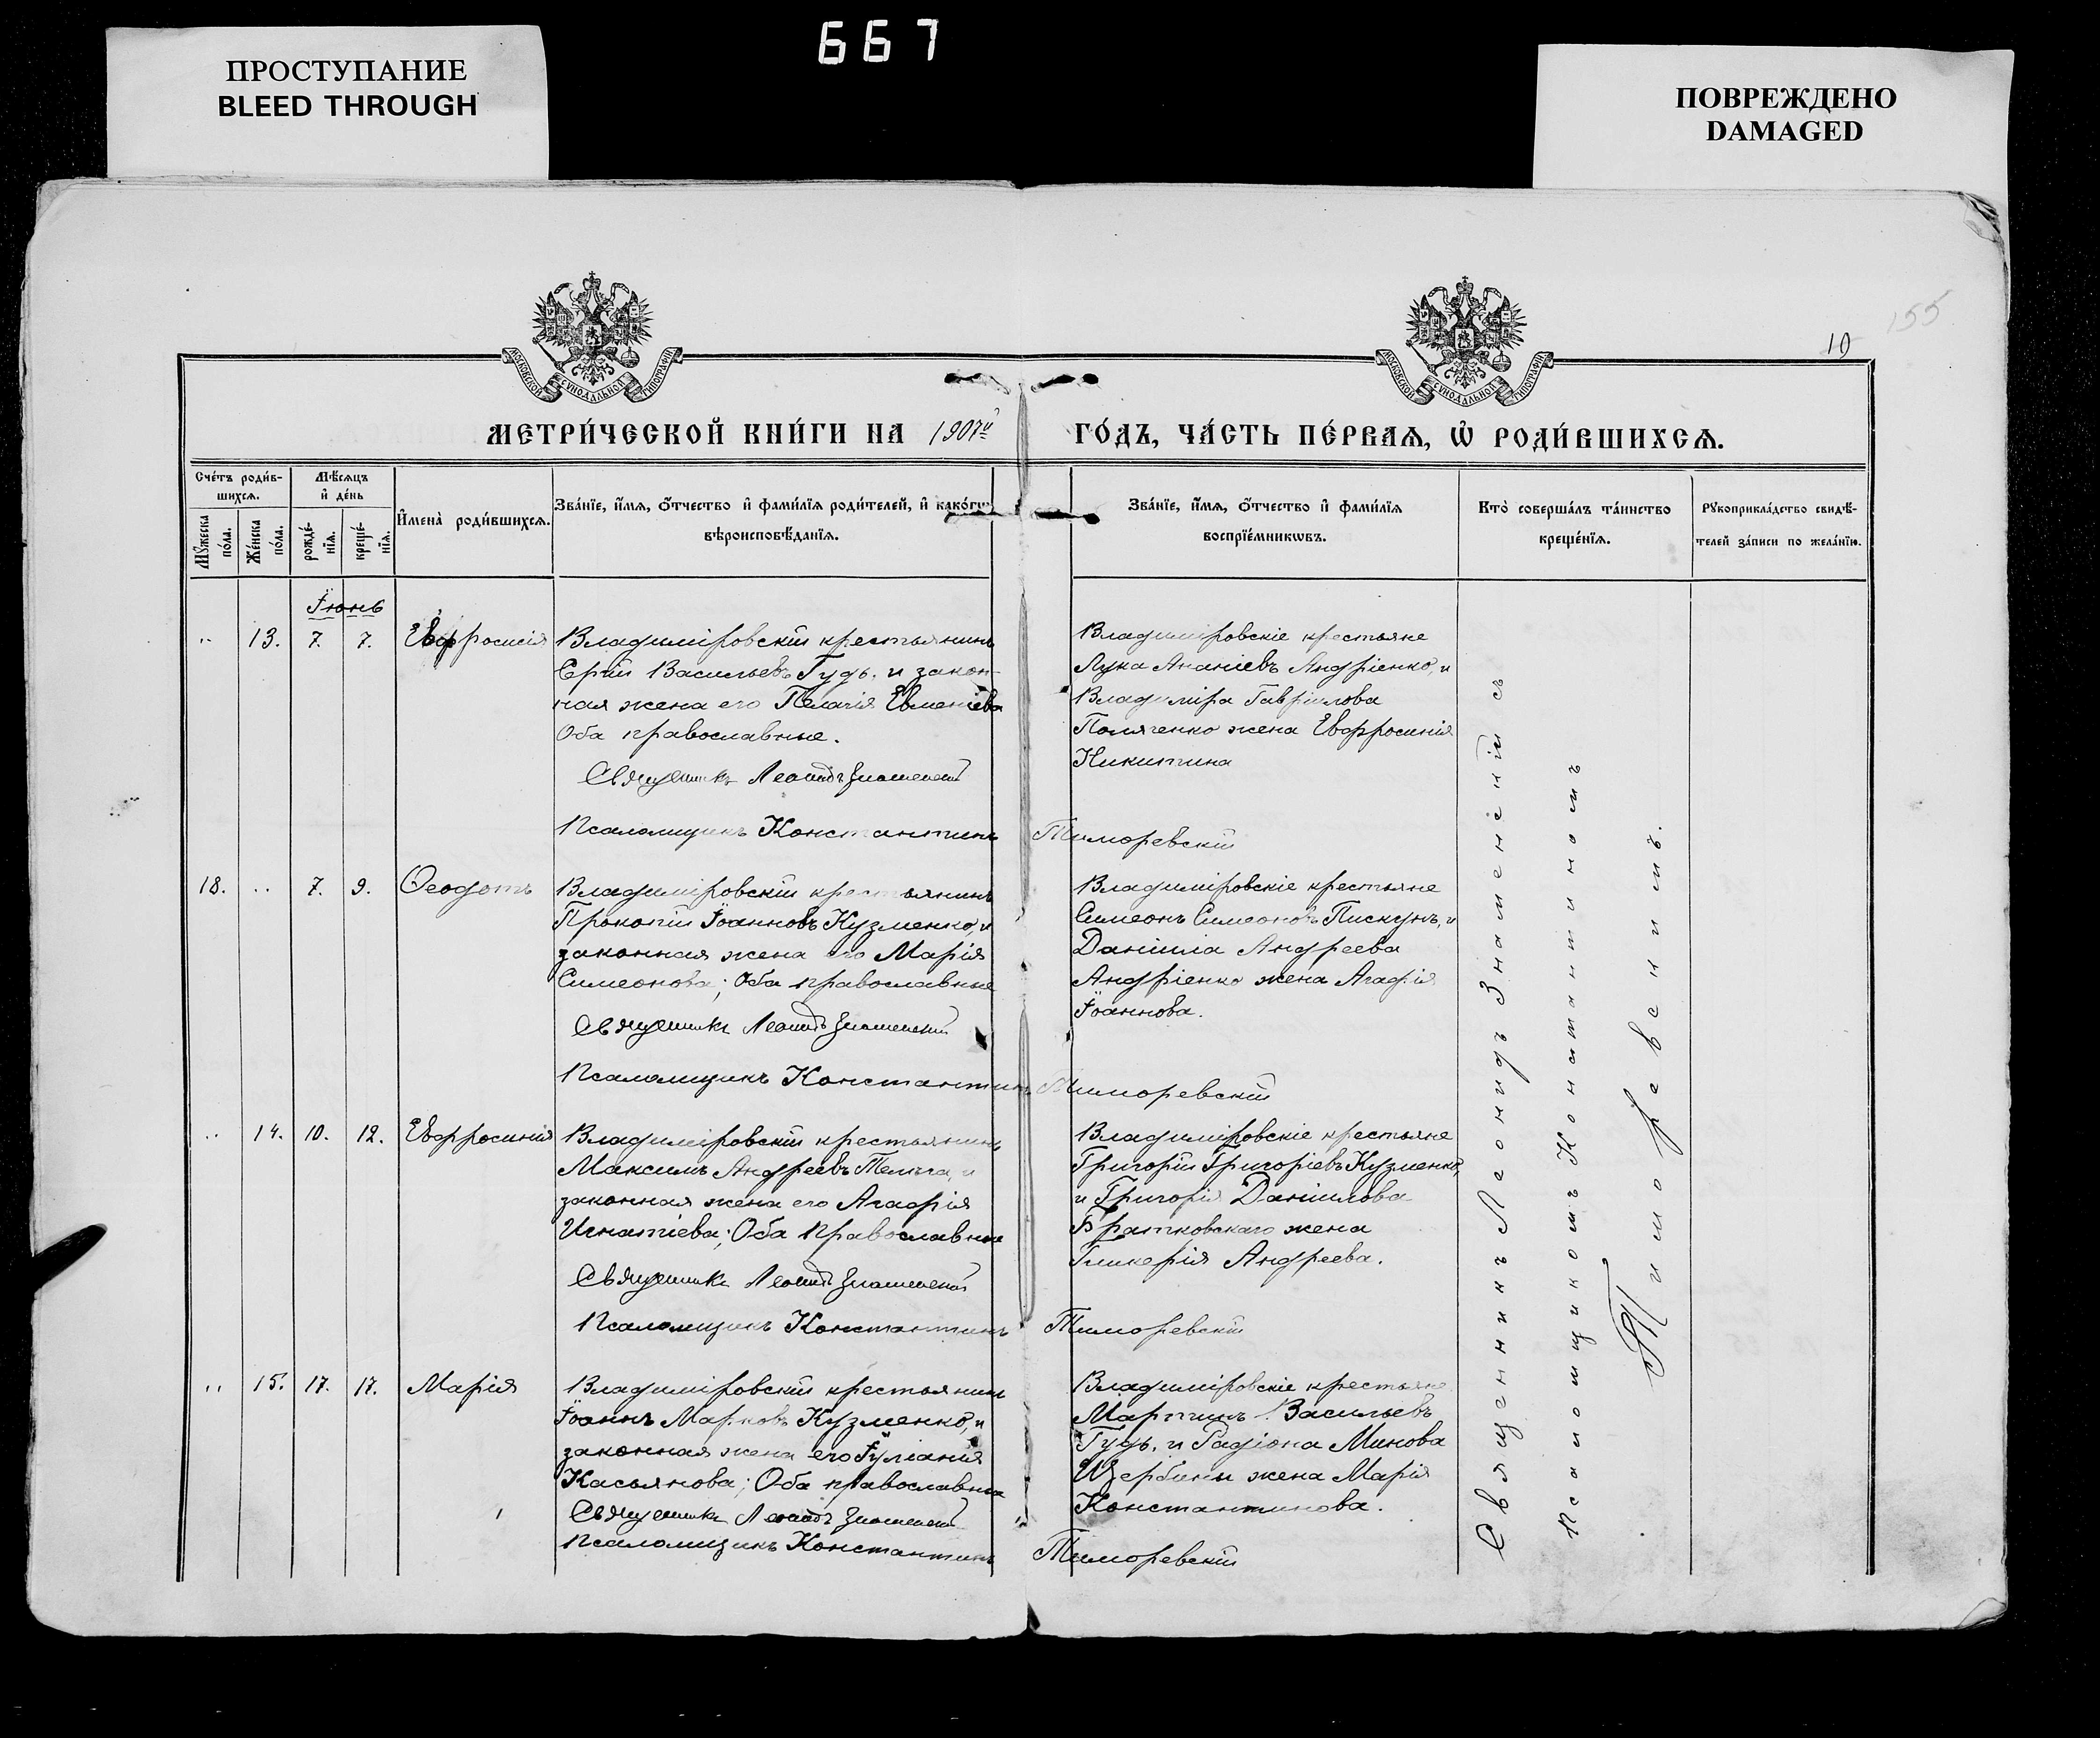 667
ПРОСТУПАНИЕ
BLEED THROUGH
ПОВРЕЖДЕНО
DAMAGED
155
10
МОСКОВСКОЙ СѴНОДАЛЬНОЙ ТИПОГРАФІИ
МОСКОВСКОЙ СѴНОДАЛЬНОЙ ТИПОГРАФІИ
МЕТРИ́ЧЕСКОЙ КНИ́ГИ НА 1907й ГО́ДЪ, ЧА́СТЬ ПЕ́РВАѦ, Ѡ҆ РОДИ́ВШИХСѦ.
Сче́тъ роди́в-
шихсѧ.
Мѣ́сѧцъ
и҆ де́нь
Мꙋ́жеска
по́ла.
Же́нска
по́ла.
рожде́-
нїѧ.
креще́-
нїѧ.
И҆мена̀ роди́вшихсѧ.
Зва́нїе, и҆́мѧ, ѻ҆́тчество и҆ фами́лїѧ роди́телей, и҆ како́гѡ
вѣроисповѣ́данїѧ.
Зва́нїе, и҆́мѧ, ѻ҆́тчество и҆ фами́лїѧ
воспрїе́мникѡвъ.
Кто̀ соверша́лъ та́инство
креще́нїѧ.
Рꙋкоприкла́дство свидѣ́-
телей за́писи по жела́нїю.
Іюнь
" 13. 7. 7. Евфросинія
Владиміровскій крестьянинъ
Ерій Васильевъ Гудь, и закон-
ная жена его Пелагія Евменіева
Оба православные.
Священникъ Леонидъ Знаменскій
Псаломщикъ Константинъ Тиморевскій
Владиміровскіе крестьяне
Лука Ананіевъ Андріенко, и
Владиміра Гавріилова
Поляченко жена Евфросинія
Никитина
18. " 7. 9. Ѳеодотъ
Владиміровскій крестьянинъ
Прокопій Іоанновъ Кузменко, и
законная жена его Марія
Симеонова; Оба православные
Священникъ Леонидъ Знаменскій
Псаломщикъ Константинъ Тиморевскій
Владиміровскіе крестьяне
Симеонъ Симеоновъ Пискунъ, и
Даніила Андреева
Андріенко жена Агафія
Іоаннова.
" 14. 10. 12. Евфросинія
Владиміровскій крестьянинъ
Максимъ Андреевъ и
законная жена его Агафія
Игнатіева; Оба православные
Священникъ Леонидъ Знаменскій
Псаломщикъ Константинъ Тиморевскій
Владиміровскіе крестьяне
Григорій Григоріевъ Кузменко,
и Григорія Даніилова
Братковскаго жена
Гликерія Андреева.
" 15. 17. 17. Марія
Владиміровскій крестьянинъ
Іоаннъ Марковъ Кузменко, и
законная жена его Іуліанія
Касьянова; Оба православные
Священникъ Леонидъ Знаменскій
Псаломщикъ Константинъ Тиморевскій
Владиміровскіе крестьяне
Мартинъ Васильевъ
Гудь, и Радіона Минова
Щербины жена Марія
Константинова.
Священникъ Леонидъ Знаменскій съ
Псаломщикомъ Константиномъ
Тиморевскимъ.